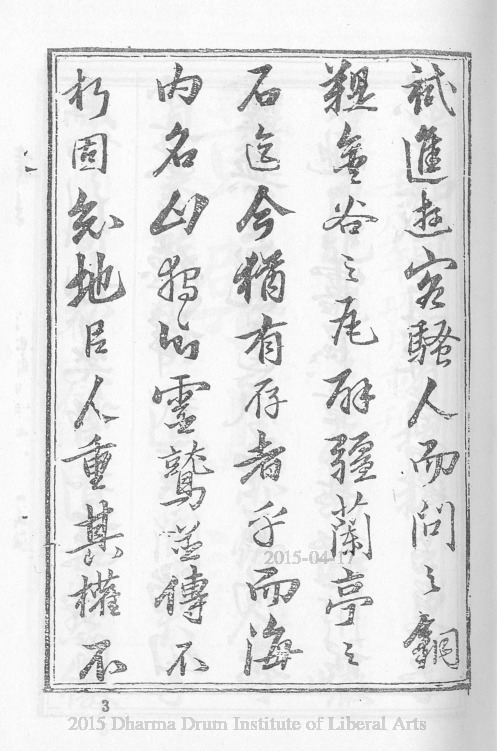 試進遊客騷人而問之銅
鞮金谷之瓦辟疆蘭亭之
石迄今猶有存者乎而海
內名山獨靈鷲並傳不
朽固知地㠯人重其權不
2015-04-17
3
2015 Dharma Drum Institute of Liberal Arts